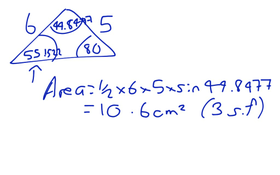 6 44.8477 5
55.1523 80
Area = 1/2 × 6 × 5 × sin 44.8477
= 10.6cm² (3 s.f)